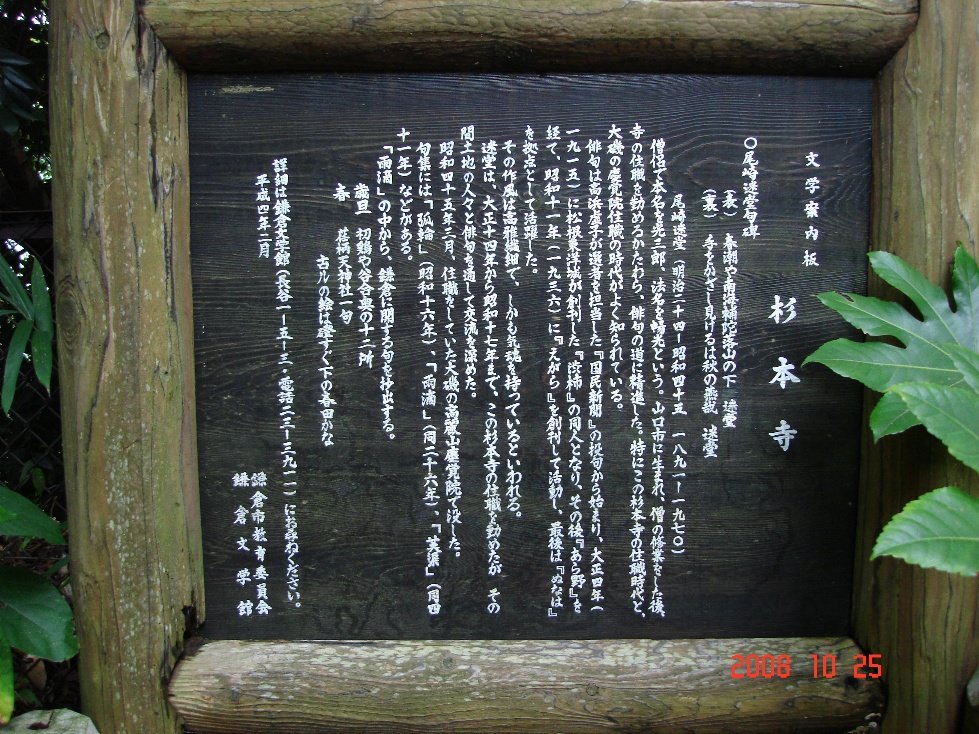 文学案内板
杉本寺
〇尾崎迷堂句碑
(表) 春潮や南海補陀落山の下 迷堂
(裏) 手をかざし見けるは秋の燕哉 迷堂
尾崎迷堂(明治二十四-昭和四十五 一八九一-一九七〇)
僧侶で本名を光三郎、法名を暢光という。山口市に生まれ、僧の修業をした後、
寺の住職を勤めるかたわら、俳句の道に精進した。特にこの杉本寺の住職時代と、
大磯の慶覚院住職の時代がよく知られている。
俳句は高浜虚子が選者を担当した『国民新聞』の投句から始まり、大正四年(
一九一五)に松根東洋城が創刊した『渋柿』の同人となり、その後『あら野』を
経て、昭和十一年(一九三六)に『えがら』を創刊して活動し、最後は『ぬなは』
を拠点として活躍した。
その作風は高雅繊細で、しかも気魂を持っているといわれる。
迷堂は、大正十四年から昭和十七年まで、この杉本寺の住職を勤めたが その
間土地の人々と俳句を通して交流を深めた。
昭和四十五年三月、住職をしていた大磯の高麗山慶覚院で没した。
句集には「孤輪」(昭和十六年)、「雨滴」(同二十六年)、「芙蕖」(同四
十一年)などがある。
「雨滴」の中から、鎌倉に関する句を抄出する。
歳旦 初鶏や谷谷奥の十二所
春 荏柄天神社一句
古ルの絵は磴すぐ下の春田かな
詳細は鎌倉文学館(長谷一-五-三・電話二三-三九一一)にお尋ねください。
平成四年二月
鎌倉市教育委員会
鎌倉文学館
2008 10 25